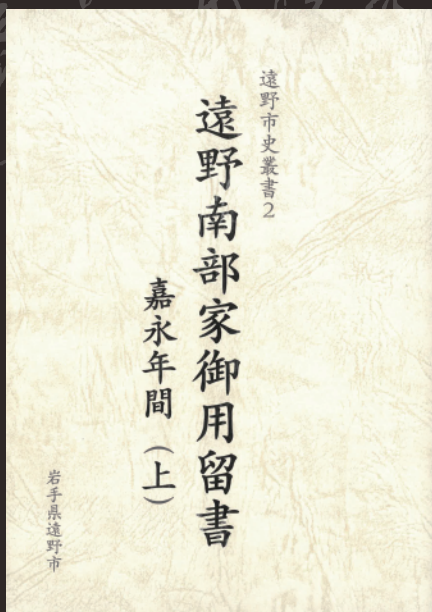 遠野市史叢書2
遠野南部家御用留書
嘉永年間（上）
岩手県遠野市